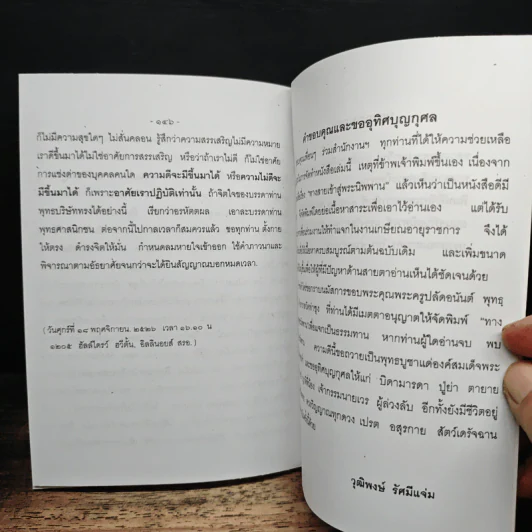 - ๑๔๖ -
ก็ไม่มีความสุขใดๆ ไม่สั่นคลอน รู้สึกว่าความสรรเสริญไม่มีความหมาย
เราดีขึ้นมาได้ไม่ใช่อาศัยการสรรเสริญ หรือว่าถ้าเราไม่ดี ก็ไม่ใช่อาศัย
การแช่งด่าของบุคคลคนใด ความดีจะมีขึ้นมาได้ หรือความไม่ดีจะ
มีขึ้นมาได้ ก็เพราะอาศัยเราปฏิบัติเท่านั้น ถ้าจิตใจของบรรดาท่าน
พุทธบริษัททรงได้อย่างนี้ เรียกว่าอรหัตตผล เอาละบรรดาท่าน
พุทธศาสนิกชน ต่อจากนี้ไปกาลเวลาก็สมควรแล้ว ขอทุกท่าน ตั้งกาย
ให้ตรง ดำรงจิตให้มั่น กำหนดลมหายใจเข้าออก ใช้คำภาวนาและ
พิจารณาตามอัธยาศัยจนกว่าจะได้ยินสัญญาณบอกหมดเวลา.
(วันศุกร์ที่ ๑๘ พฤศจิกายน ๒๕๒๖ เวลา ๑๖.๑๐ น
๑๒๐๕ ฮัลล์ไดรว์ อวีตั้น, อิลลินอยส์ สรอ.)
คำขอบคุณและขออุทิศบุญกุศล
ร่วมสำนักงานฯ ทุกท่านที่ได้ให้ความช่วยเหลือ
จัดทำหนังสือเล่มนี้ เหตุที่ข้าพเจ้าพิมพ์ขึ้นเอง เนื่องจาก
"ทางสายเข้าสู่พระนิพพาน" แล้วเห็นว่าเป็นหนังสือดีมี
โดยย่อเนื้อหาสาระเพื่อเอาไว้อ่านเอง แต่ได้รับ
พิมพ์ขึ้นใช้ทำแจกในงานเกษียณอายุราชการ จึงได้
เนื้อหาครบสมบูรณ์ตามต้นฉบับเดิม และเพิ่มขนาด
ให้ผู้ที่มีปัญหาด้านสายตาอ่านเห็นได้ชัดเจนด้วย
นมัสการขอบพระคุณพระครูปลัดอนันต์ พุทธ
ที่ท่านได้มีเมตตาอนุญาตให้จัดพิมพ์ "ทาง
เพื่อแจกเป็นธรรมทาน หากท่านผู้ใดอ่านจบ พบ
ความดีนี้ขอถวายเป็นพุทธบูชาแด่องค์สมเด็จพระ
และขออุทิศบุญกุศลให้แก่ บิดามารดา ปู่ย่า ตายาย
เจ้ากรรมนายเวร ผู้ล่วงลับ อีกทั้งยังมีชีวิตอยู่
วิญญาณทุกดวง เปรต อสุรกาย สัตว์เดรัจฉาน
วุฒิพงษ์ รัศมีแจ่ม